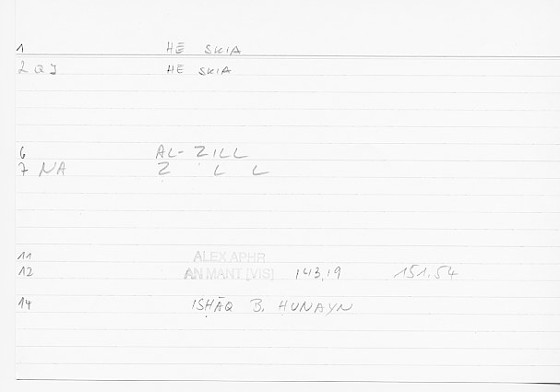 1 HE SKIA
2 QI HE SKIA
6 AL-ZILL
7 NA Z L L
11 ALEX APHR
12 AN MANT [VIS] 143,19 151.54
14 ISḤĀQ B. HUNAYN